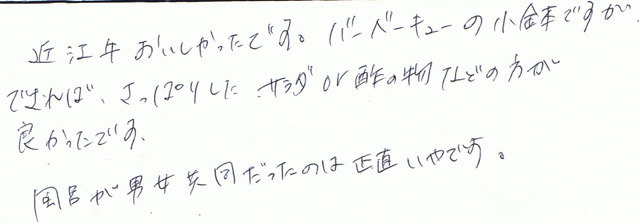 近江牛おいしかったです。バーベーキューの小鉢ですが
できれば、さっぱりした サラダor酢の物などの方が
良かったです、
風呂が男女共同だったのは正直いやです。